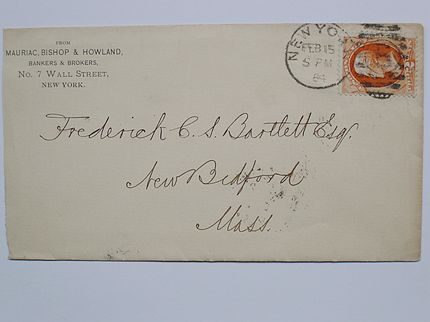 FROM
MAURIAC, BISHOP & HOWLAND,
BANKERS & BROKERS,
No. 7 WALL STREET,
NEW YORK.
NEW YORK
FEB 15
5 PM
84
Frederick C. S. Bartlett Esq.
New Bedford
Mass.